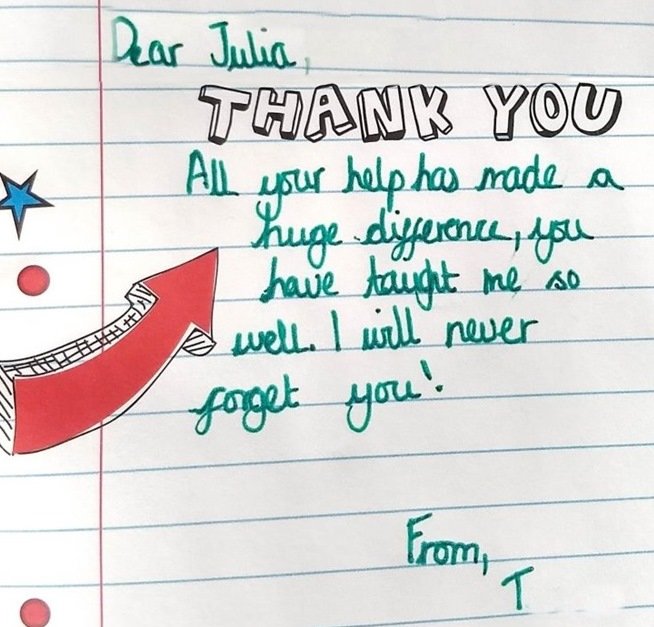 Dear Julia,
THANK YOU
All your help has made a
huge difference, you
have taught me so
well. I will never
forget you!
From,
T